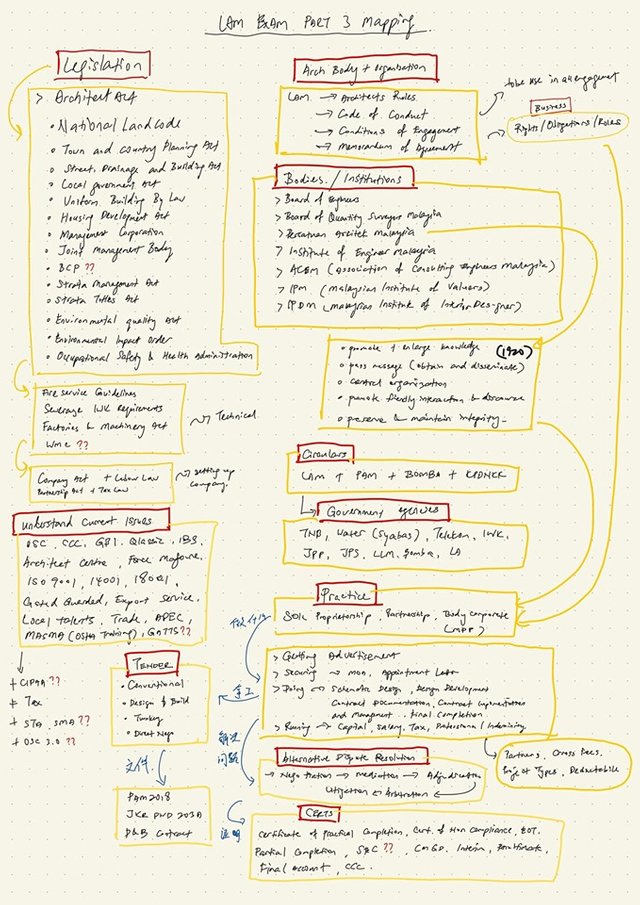 LAM EXAM PART 3 Mapping
Legislation
> Architect Act
• National Landcode
• Town and country Planning Act
• Street, Drainage and Building Act
• Local government Act
• Uniform Building By Law
• Housing Development Act
• Management Corporation
• Joint Management Body
• BCP ??
• Strata Management Act
• Strata Titles Act
• Environmental quality Act
• Environmental Impact order
• Occupational Safety & Health Administration
Fire service Guidelines
Sewerage IWK Requirements
Factories & Machinery Act
WMC ??
Technical
Company Act + Labour Law
Partnership Act + Tax Law
setting up
company.
understand Current Issues
OSC, CCC, GBI, Qlassic, IBS
Architect Centre, Force Majeure,
ISO 9001, 14001, 18001,
Gated Guarded, Export Service,
Local talents, Trade, APEC,
MASMA (OSHA Training), GATTS??
+ CIPAA ??
+ Tax
+ STA, SMA ??
+ OSC 3.0 ??
TENDER
• Conventional
• Design & Build
• Turnkey
• Direct Nego
文件
PAM 2018
JKR PWD 203A
D&B Contract
Arch Body + Organisation
LAM → Architects Rules
→ Code of Conduct
→ Conditions of Engagement
→ Memorandum of Agreement
to be use in an engagement
Business
Rights/Obligations/Roles
Bodies / Institutions
> Board of Engineers
> Board of Quantity Surveyor Malaysia
> Pertubuhan Arkitek Malaysia
> Institute of Engineer Malaysia
> ACEM (Association of Consulting Engineers Malaysia)
> IPM (Malaysian Institute of Valuers)
> IPDM (Malaysian Institute of Interior Designer)
• promote & enlarge knowledge (1920)
• pass message (obtain and disseminate)
• central organization
• promote friendly interaction & discourse
• preserve & maintain integrity
Circulars
LAM + PAM + BOMBA + KPDNKK
Government agencies
TNB, Water (Syabas), Telekom, IWK,
JPP, JPS, LLM, Bomba, LA
Practice
Sole Proprietorship, Partnership, Body corporate
(MPP)
> Getting Advertisement
> Securing → MOA, Appointment Letter
> Doing → Schematic Design, Design Development
Contract Documentation, Contract Implementation
and Management, Final Completion
> Running → Capital, Salary, Tax,
手工
Partners, Cross Fees,
Project Types, Deductable
问题
Alternative Dispute Resolution
→ Negotiation → mediation → Adjudication
Litigation ← Arbitration
证明
CERTS
Certificate of Practical Completion, Cert. of Non Compliance, EOT,
Partial Completion, S&C ??, CMGD, Interim, Penultimate,
Final Account, CCC.